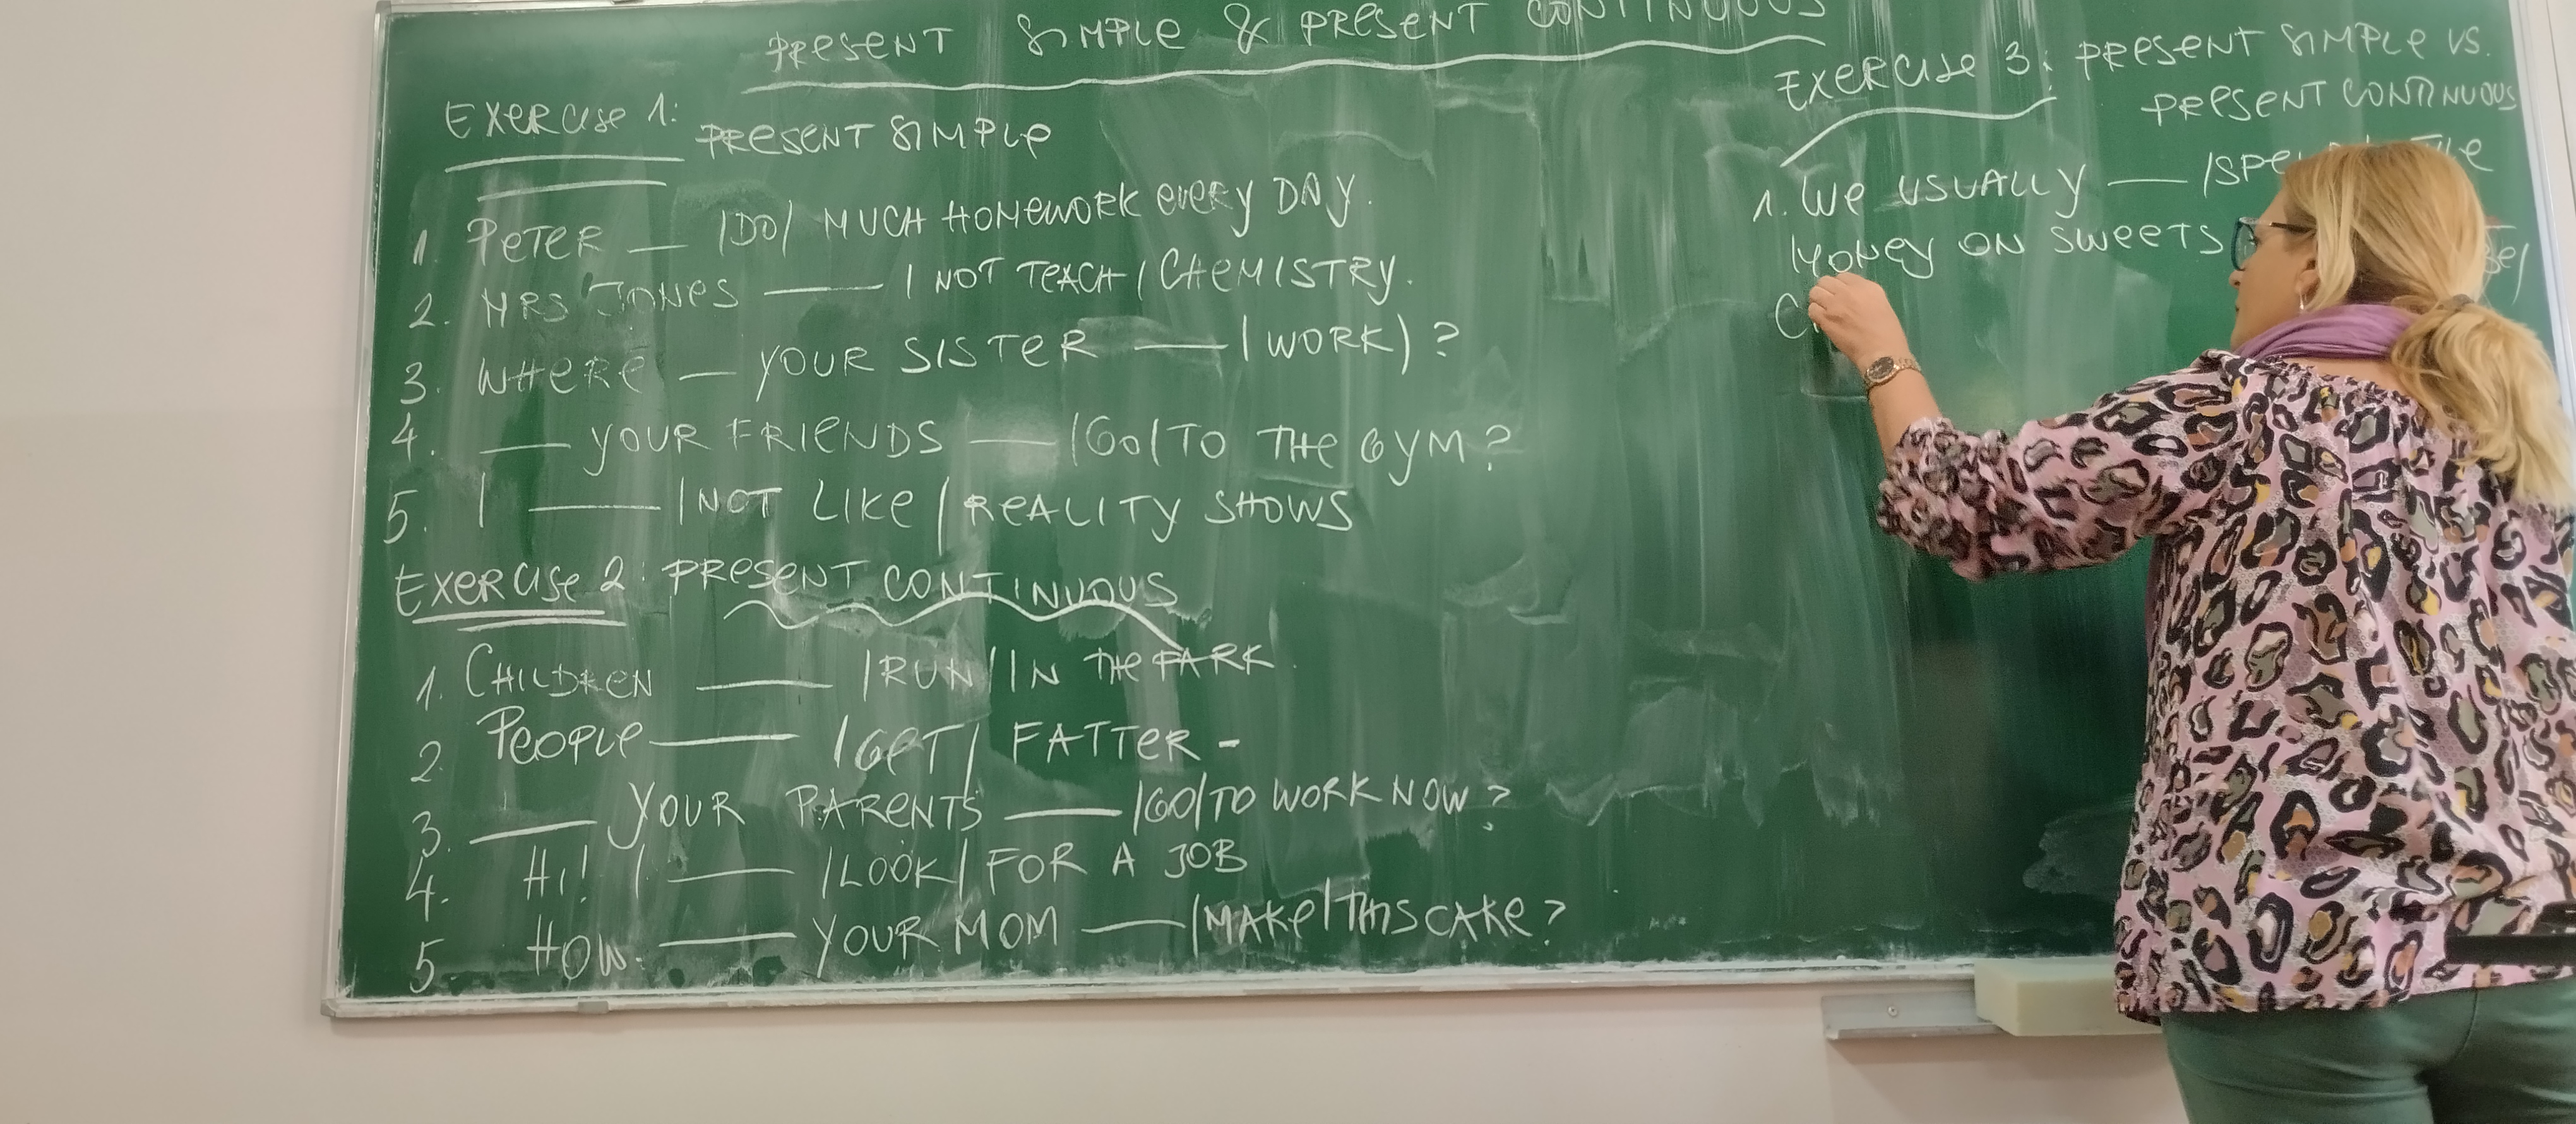 PRESENT SIMPLE & PRESENT CONTINUOUS
EXERCISE 1: PRESENT SIMPLE
1. PETER __ /DO/ MUCH HOMEWORK EVERY DAY.
2. MRS JONES ____ / NOT TEACH / CHEMISTRY.
3. WHERE __ YOUR SISTER ___ / WORK) ?
4. ___ YOUR FRIENDS ___ /GO/ TO THE GYM?
5. I ____ / NOT LIKE / REALITY SHOWS
EXERCISE 2: PRESENT CONTINUOUS
1. CHILDREN ____ /RUN/ IN THE PARK.
2. PEOPLE ____ /GET/ FATTER -
3. ____ YOUR PARENTS ____ /GO/ TO WORK NOW?
4. HI! I ____ /LOOK/ FOR A JOB
5 HOW ____ YOUR MOM ___ /MAKE/ THIS CAKE?
EXERCISE 3: PRESENT SIMPLE VS.
PRESENT CONTINUOUS
1. WE USUALLY ___
MONEY ON SWEETS